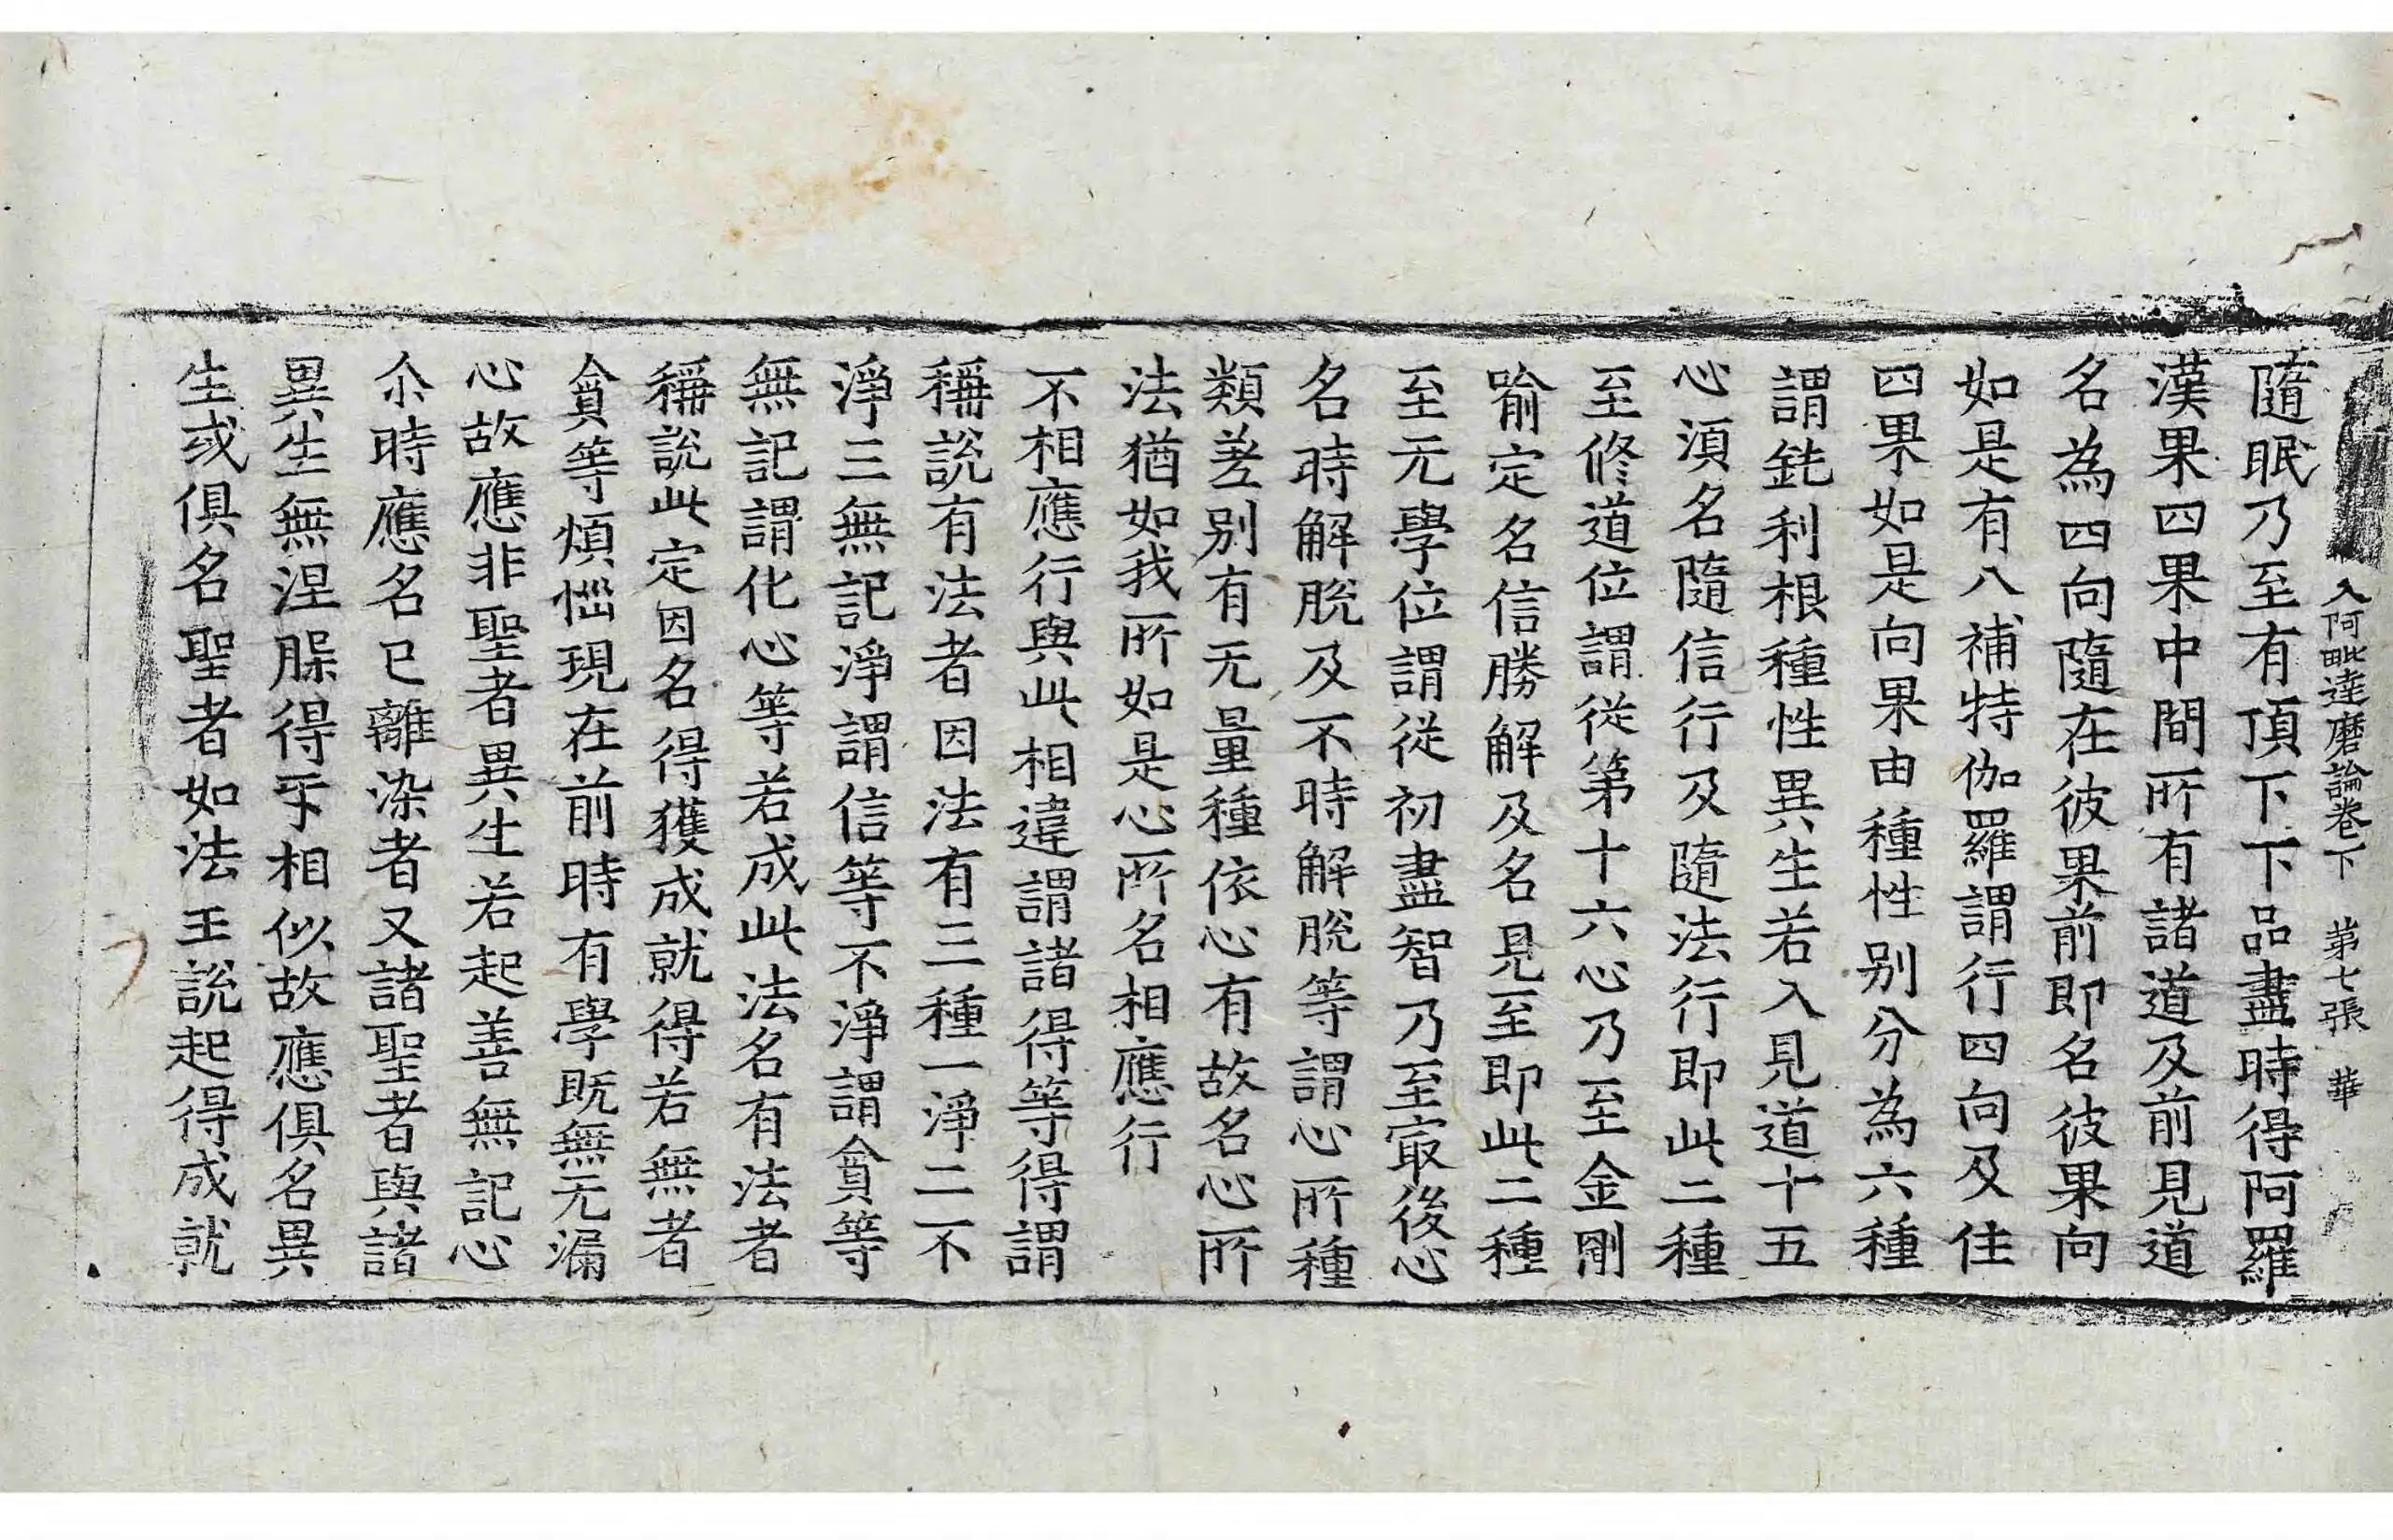 入阿毗達磨論卷下 第七張 華
隨眠乃至有頂下下品盡時得阿羅
漢果四果中間所有諸道及前見道
名為四向隨在彼果前即名彼果向
如是有八補特伽羅謂行四向及住
四果如是向果由種性别分為六種
謂鈍利根種性異生若入見道十五
心湏名隨信行及隨法行即此二種
至修道位謂從第十六心乃至金剛
喻定名信勝解及名見至即此二種
至无學位謂從初盡智乃至冣後心
名時解脫及不時解脫等謂心所種
類差别有无量種依心有故名心所
法猶如我所如是心所名相應行
不相應行與此相違謂諸得等得謂
稱說有法者因法有三種一淨二不
淨三無記淨謂信等不淨謂貪等
無記謂化心等若成此法名有法者
稱說此定因名得獲成就得若無者
貪等煩惱現在前時有學既無无漏
心故應非聖者異生若起善無記心
尒時應名已離染者又諸聖者與諸
異生無涅槃得乎相似故應俱名異
生或俱名聖者如法王說起得成就